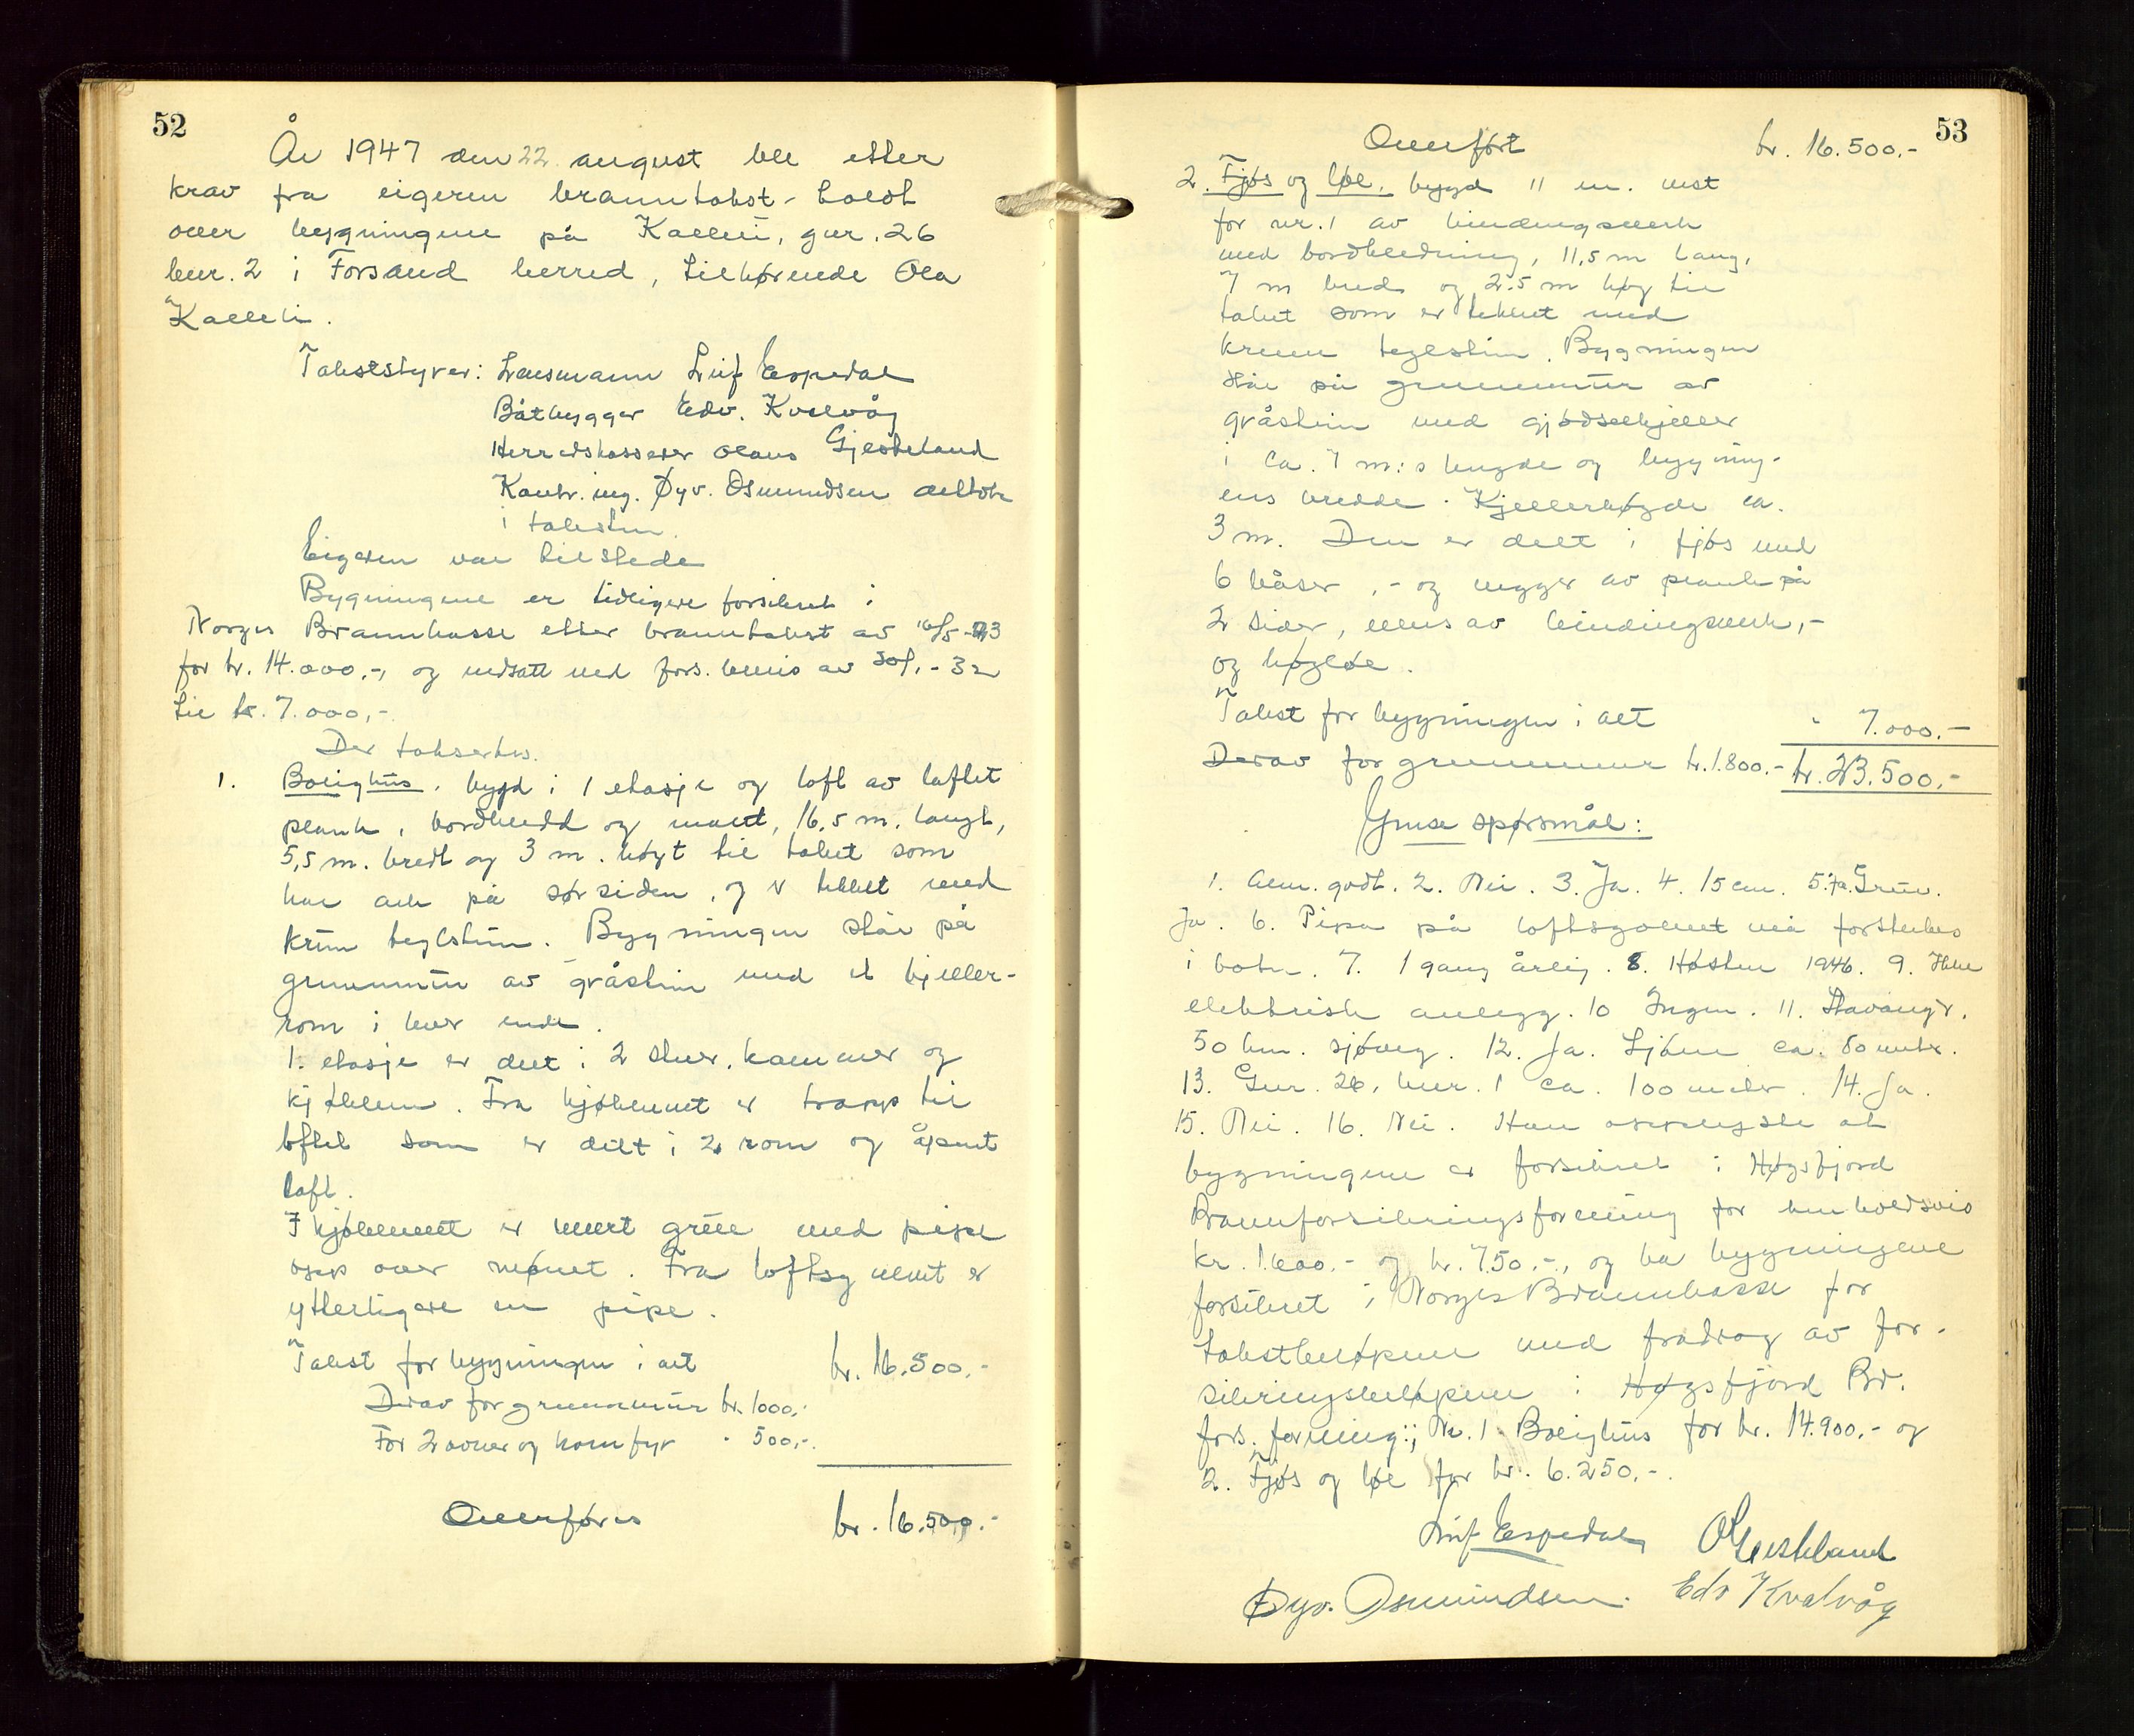 52
År 1947 den 22. august ble etter
krav fra eigeren branntakst holdt
over bygningene på Kalleli, gnr. 26
bnr. 2 i Forsand herred, tilhørende Ola
Kalleli.
Takststyrer: Lensmann Leif Espedal
Båtbygger Edv. Kvalvåg
Herredskasserer Olaus Gjesteland
Kontr. ing. Øyv. Osmundsen deltok
i taksten.
Eigeren var tilstede
Bygningene er tidligere forsikret i
Norges Brannkasse etter branntakst av 16/5-23
for kr. 14.000,-, og nedsatt ved fors. bevis av 30/1-32
til kr. 7.000,-
Der taksertes.
1. Bolighus, bygd i 1 etasje og loft av laftet
plank, bordkledd og malt, 16,5 m. langt,
5,5 m. bredt og 3 m. høgt til taket som
har ark på sørsiden, og er tekket med
krum teglstein. Bygningen står på
grunnmur av gråstein med et kjeller-
rom i hver ende.
1. etasje er delt i 2 stuer, kammer og
kjøkken. Fra kjøkkenet er trapp til
loftet som er delt i 2 rom og åpent
loft.
I kjøkkenet er murt grue med pipe
opp over mønet. Fra loftsgolvet er
ytterligere en pipe.
Takst for bygningen i alt kr. 16.500,-
Derav for grunnmur kr. 1000,-
For 2 ovner og komfyr " 500,-
Overføres kr. 16.500,-
53
Overført kr. 16.500,-
2. Fjøs og løe, bygd 11 m. vest
for nr. 1 av bindingsverk
med bordkledning, 11,5 m lang,
7 m bred og 2.5 m høg til
taket som er tekket med
krum teglstein. Bygningen
står på grunnmur av
gråstein med gjødselkjeller
i ca. 7 m:s lengde og bygning-
ens bredde. Kjellerhøgde ca.
3 m. Den er delt i fjøs med
6 båser, - og vegger av plank på
2 sider, ellers av bindingsverk, -
og høgløe.
Takst for bygningen i alt " 7.000,-
Derav for grunnmur kr. 1.800.- kr. 23.500,-
Ymse spørsmål:
1. Alm. godt. 2. Nei. 3. Ja. 4. 15 cm. 5. Ja. Grue.
Ja. 6. Pipa på loftsgolvet må forsterkes
i botn. 7. 1 gang årlig. 8. Høsten 1946. 9. Ikke
elektrisk anlegg. 10 Ingen. 11. Stavanger.
50 km. sjøveg. 12. Ja. Sjøen ca. 80 meter.
13. Gnr. 26, bnr. 1 ca. 100 meter. 14. Ja.
15. Nei. 16. Nei. Han opplyste at
bygningene er forsikret i Høgsfjord
Brannforsikringsforening for henholdsvis
kr. 1.600.- og kr. 750.-, og ba bygningene
forsikret i Norges Brannkasse for
takstbeløpene med fradrag av for-
sikringsbeløpene i Høgsfjord Br.
fors. forening:; Nr. 1. Bolighus for kr. 14.900,- og
2. Fjøs og løe for kr. 6.250,-.
Leif Espedal OGjesteland
Øyv. Osmundsen. Edv Kvalvåg